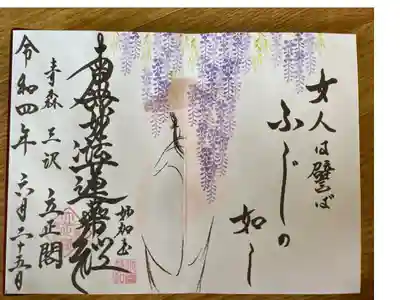 女人は譬ば
ふじの
如し
南無妙法蓮華経
青森 三沢 立正閣
令和四年 六月二十五日